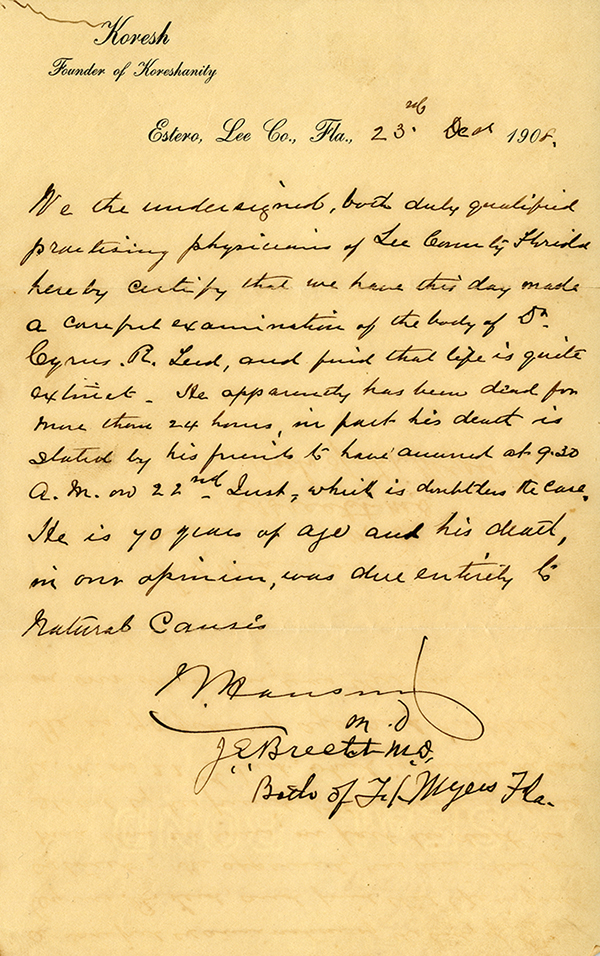 Koresh
Founder of Koreshanity
Estero, Lee Co., Fla., 23rd Dec 1908.
We the undersigned, both duly qualified
practising physicians of Lee County Florida
hereby certify that we have this day made
a careful examination of the body of Dr.
Cyrus. R. Teed, and find that life is quite
extinct - He apparently has been dead for
more than 24 hours, in fact his death is
stated by his friends to have occurred at 9.30
A. M. on 22nd Inst, which is doubtless the case.
He is 70 years of age and his death,
in our opinion, was due entirely to
Natural Causes
M. D
J E Brecht M.D,
Both of Ft. Myers Fla.